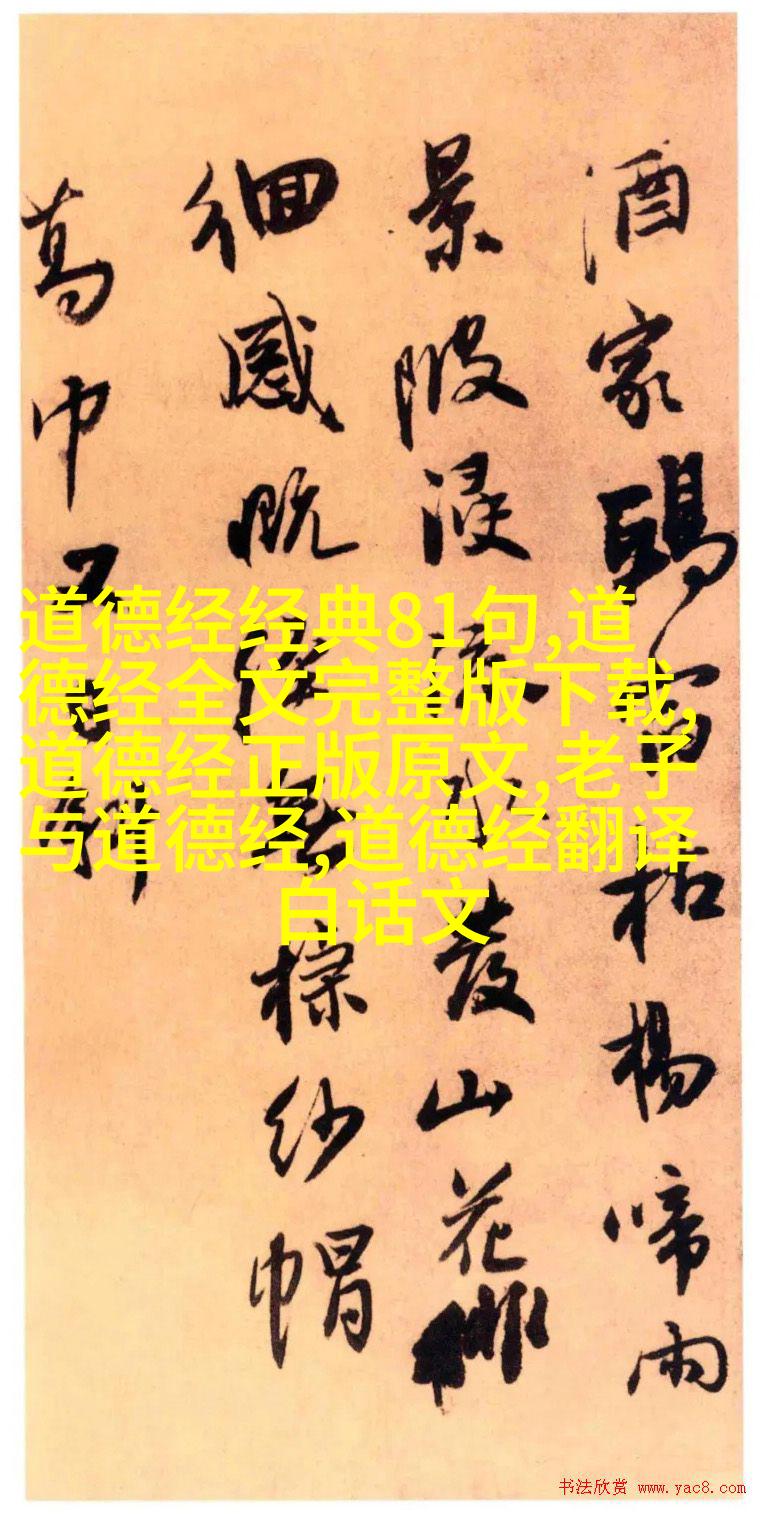 酒家枯楊啼雨
景陂浸水發山花
徊感慨棕紗帽
葛巾
道德经经典81句,道
德经全文完整版下载,
道德经正版原文,老子
与道德经,道德经翻译
白话文
书法欣赏 www.yac8.com